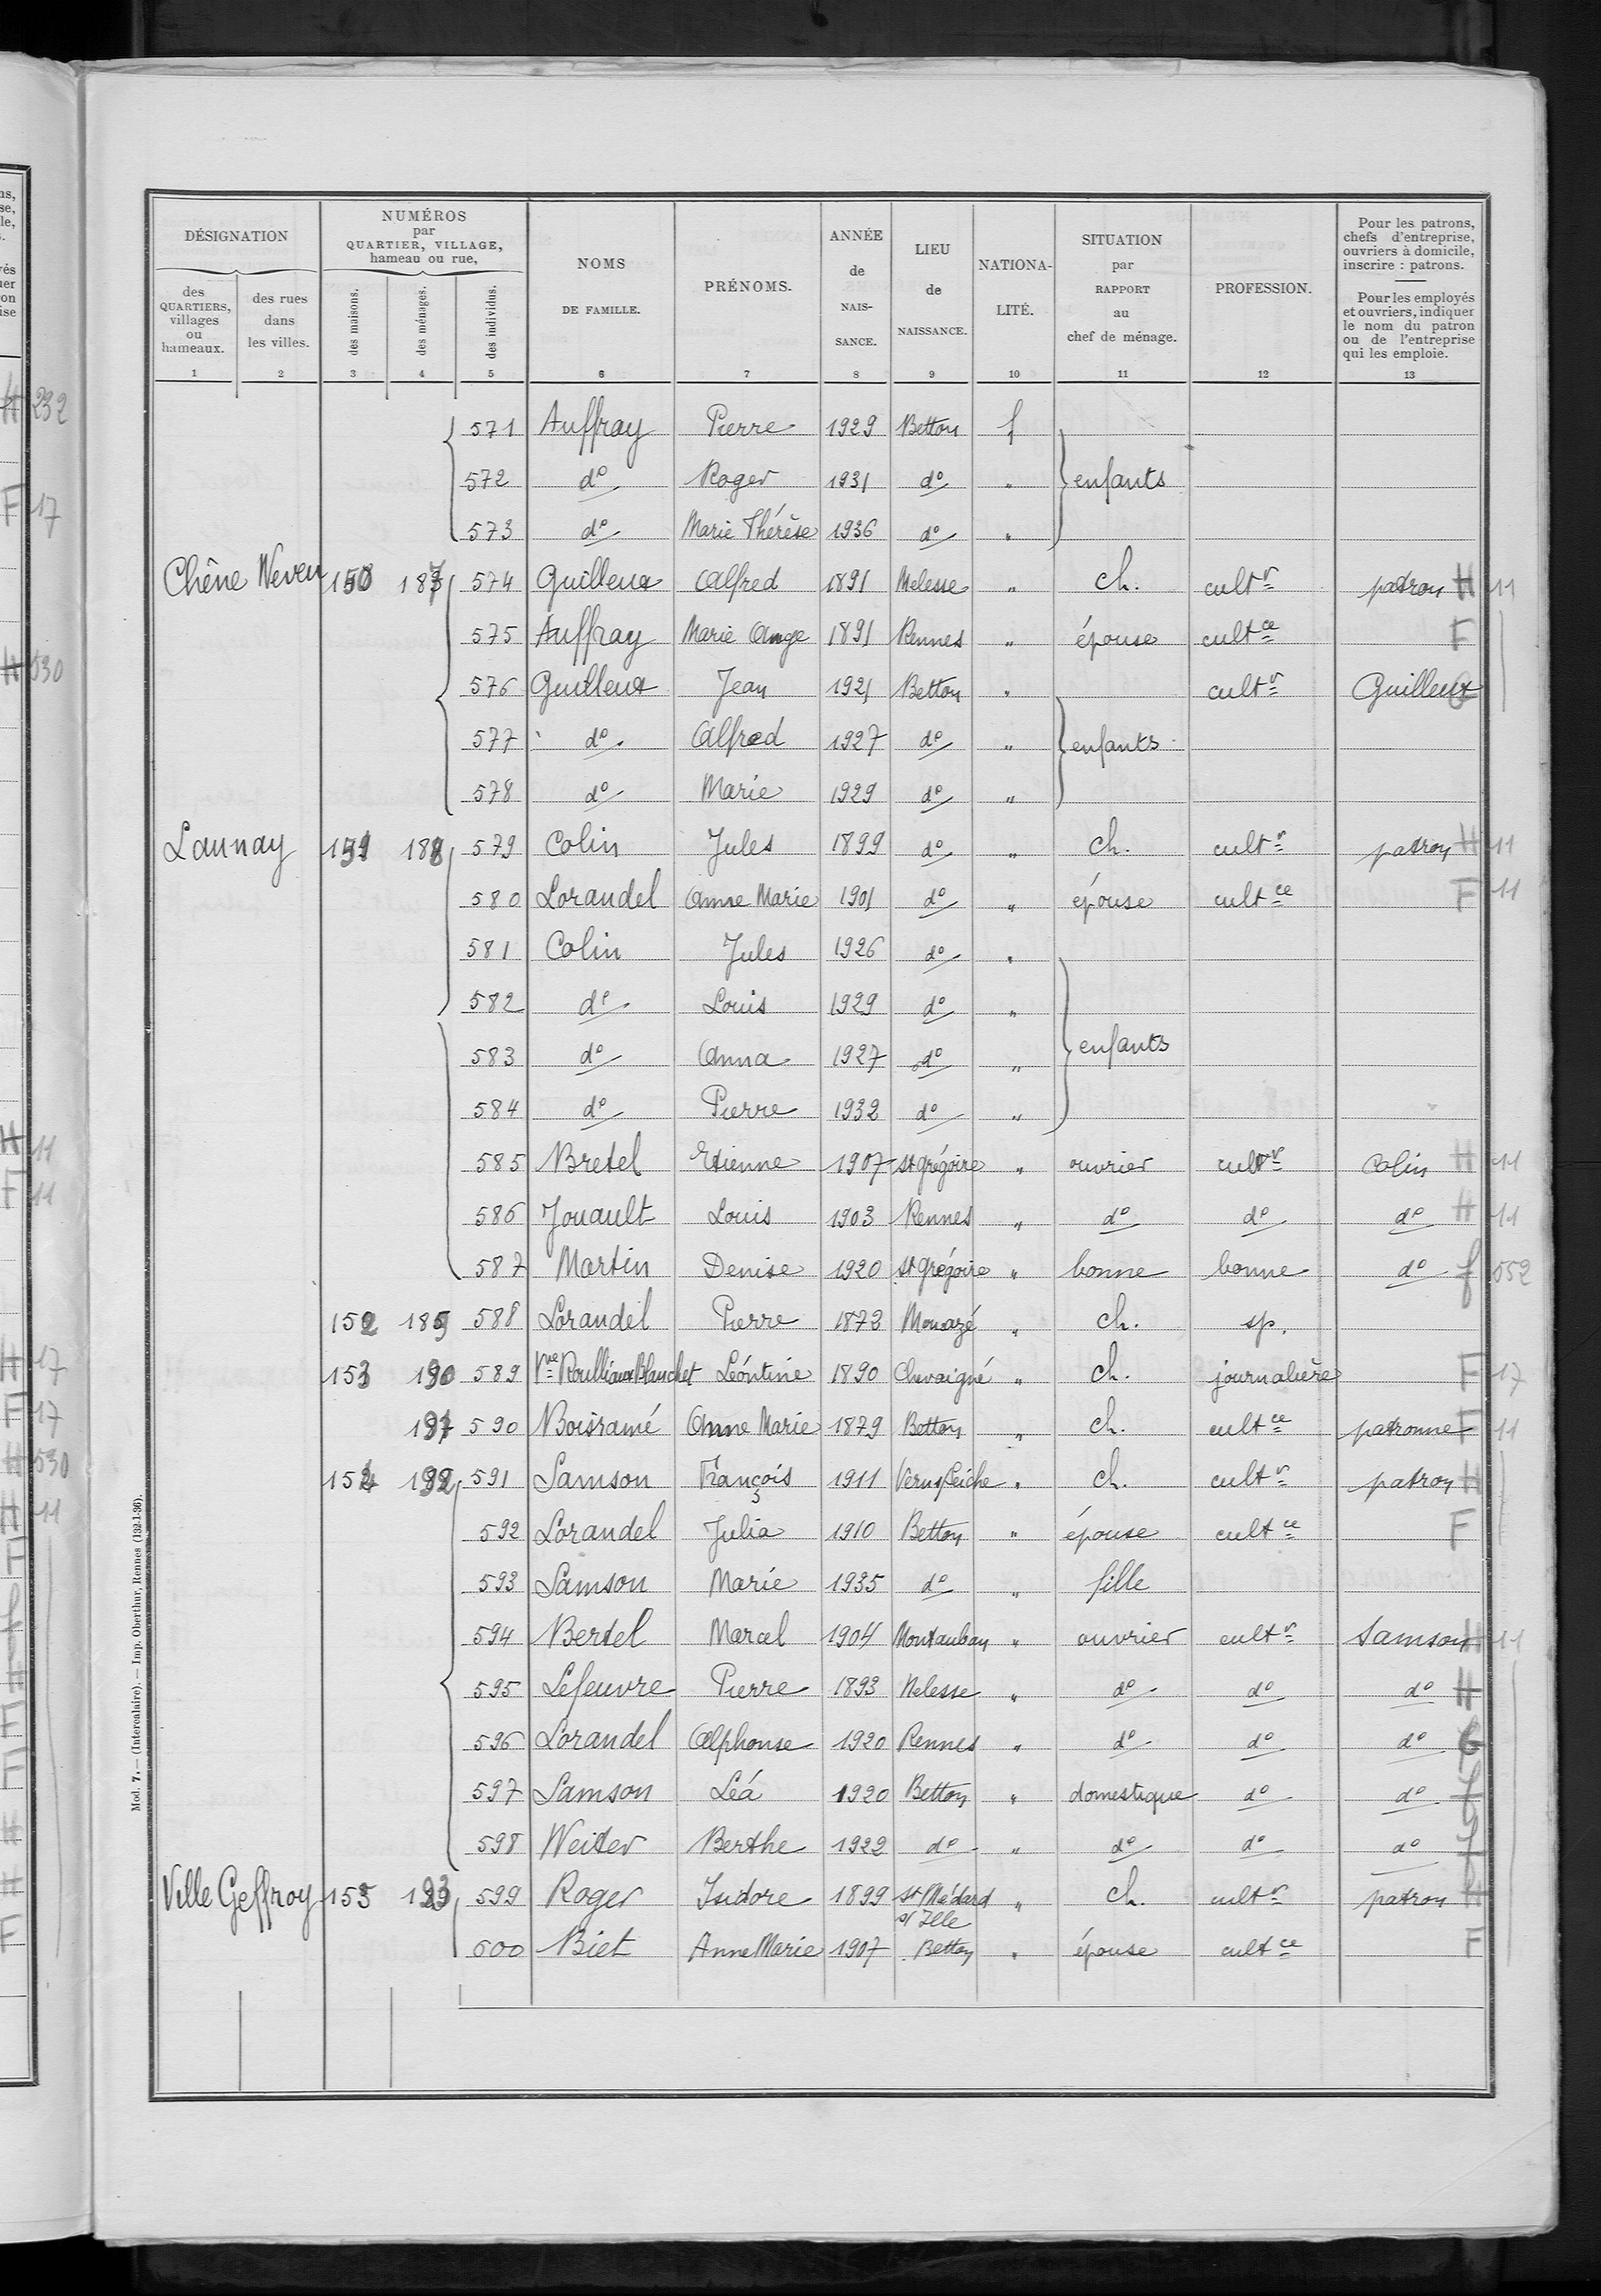 DÉSIGNATION
des QUARTIERS, villages ou hameaux.
des rues dans les villes.
NUMÉROS par QUARTIER, VILLAGE, hameau ou rue,
des maisons.
des ménages.
des individus.
NOMS DE FAMILLE.
PRÉNOMS.
ANNÉE de NAIS- SANCE.
LIEU de NAISSANCE.
NATIONA- LITÉ.
SITUATION par RAPPORT au chef de ménage.
PROFESSION.
Pour les patrons, chefs d'entreprise, ouvriers à domicile, inscrire : patrons.
Pour les employés et ouvriers, indiquer le nom du patron ou de l'entreprise qui les emploie.
1 2 3 4 5 6 7 8 9 10 11 12 13
571 Auffray Pierre 1929 Betton f
572 d° Roger 1931 d° " enfants
573 d° Marie Thérèse 1936 d° "
Chêne Neveu 150 187 574 Guilleux Alfred 1891 Melesse " ch. cultr patron H 11
575 Auffray Marie Ange 1891 Rennes " épouse cultce F
576 Guilleux Jean 1921 Betton " cultr Guilleux
577 d° Alfred 1927 d° " enfants
578 d° Marie 1929 d° "
Launay 151 188 579 Colin Jules 1899 d° " ch. cultr patron H 11
580 Lorandel Anne Marie 1901 d° " épouse cultce F 11
581 Colin Jules 1926 d° "
582 d° Louis 1929 d° "
583 d° Anna 1927 d° " enfants
584 d° Pierre 1932 d° "
585 Bretel Etienne 1907 St Grégoire " ouvrier cultr Colin H 11
586 Jouault Louis 1903 Rennes " d° d° d° H 11
587 Martin Denise 1920 St Grégoire " bonne bonne d° f 552
152 189 588 Lorandel Pierre 1873 Mouazé " ch. sp.
153 190 589 Vve Roulliaux Blanchet Léontine 1890 Chevaigné " ch. journalière F 17
191 590 Boisramé Anne Marie 1879 Betton " ch. cultce patronne F 11
154 192 591 Samson François 1911 Vern s/ Seiche " ch. cultr patron H
592 Lorandel Julia 1910 Betton " épouse cultce F
593 Samson Marie 1935 d° " fille
594 Bertel Marcel 1904 Montauban " ouvrier cultr Samson H 11
595 Lefeuvre Pierre 1893 Melesse " d° d° d° H
596 Lorandel Alphonse 1920 Rennes " d° d° d° G
597 Samson Léa 1920 Betton " domestique d° d° f
598 Weiter Berthe 1922 d° " d° d° d° f
Ville Geffroy 155 193 599 Roger Isidore 1899 St Médard s/ Ille " ch. cultr patron H
600 Biet Anne Marie 1907 Betton " épouse cultce F
Mod. 7. — (Intercalaire). — Imp. Oberthur, Rennes (132-1-36).